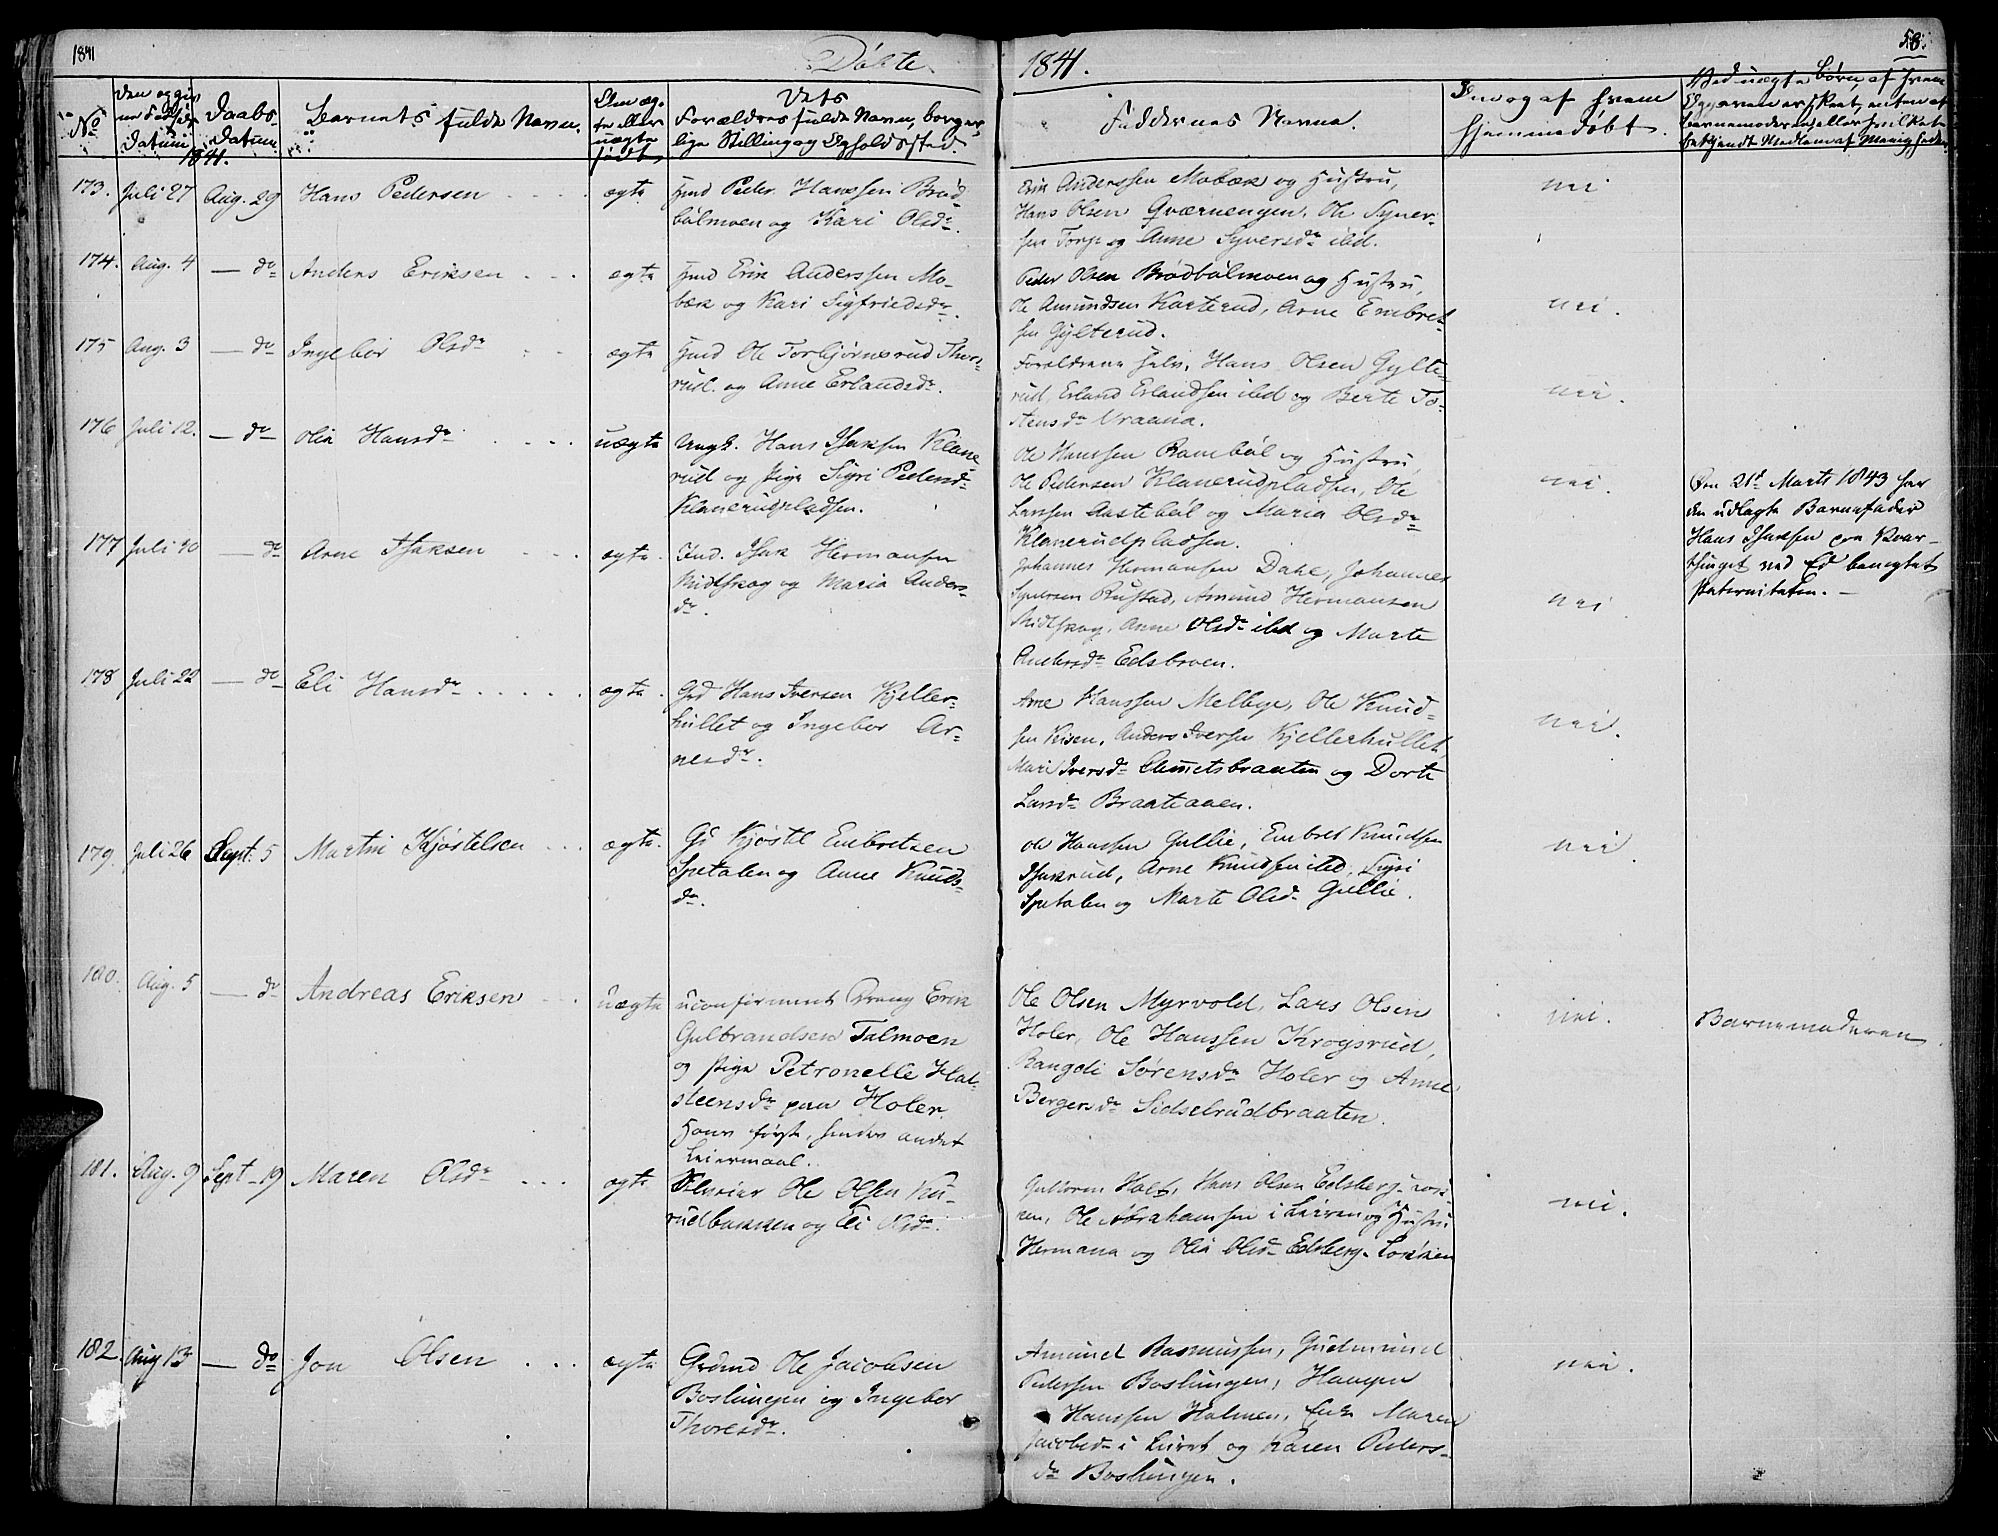 1841
Døbte
1841.
58.
No
Den opgivne Fødsels Datum
Daabs Datum
Barnets fulde Navn.
Om ægte eller uægte født
Dets
Forældres fulde Navn, borgerlige Stilling og Opholdssted.
Faddernes Navne.
Om og af hvem hjemmedøbt.
Ved uægte Børn, af hvem Opgaven er skeet, enten af Barnemoderen, eller hvilket bekjendt Medlem af Menigheden.
1841.
173. Juli 27 Aug. 29 Hans Pedersen ægte Hmd Peder Hanssen Brød-
bølmoen og Kari Olsdr.
Erik Anderssen Mobæk og Hustru,
Hans Olsen Qværnengen, Ole Syver-
sen Torp og Anne Syversdr ibd.
nei
174. Aug. 4 — do Anders Eriksen ægte Hmd Erik Anderssen Mo-
bæk og Kari Sigfriedsdr.
Peder Olsen Brødbølmoen og Hustru,
Ole Amundsen Karterud, Arne Embret-
sen Gylterud.
nei.
175 Aug. 3 — do Ingebor Olsdr ægte Hmd Ole Torbjørnsrud Thor-
rud. og Anne Erlandsdr.
Forældrene selv, Hans Olsen Gylte-
rud, Erland Erlandsen ibd og Berte To-
stensdr Vraana.
nei.
176 Juli 12. — do Olia Hansdr uægte Ungk. Hans Isaksen Klane-
rud og Pige Sigri Pedersdr
Klanerudpladsen.
Ole Hanssen Rambøl og Hustru,
Ole Pedersen Klanerudpladsen, Ole
Larssen Aastebøl og Maria Olsdr
Klanerudpladsen.
nei.
Den 21d Marts 1843 har
den udlagte Barnefader
Hans Isaksen paa Kvar-
thinget ved Ed benegtet
Paterniteten. —
177 Juli 10 — do Arne Isaksen ægte. Ind. Isak Hermansen
Midtskog og Maria Anders-
dr.
Johannes Hermansen Dahl, Johannes
Syversen Rustad, Amund Hermansen
Midtskog, Anne Olsdr ibd og Marte
Andersdr Edsbroen.
nei
178 Juli 22 — do Eli Hansdr ægte. Grd Hans Iversen Kjeller-
hullet og Ingebor Ar-
nesdr.
Arne Hanssen Melbye, Ole Knud-
sen Veisen, Anders Iversen Kjellerhullet
Mari Iversdr Aamotsbraaten og Dorte
Larsdr Braateaaen.
nei.
179. Juli 26 Sept. 5 Martin Kjøstelsen ægte. Gs Kjøstel Embretsen
Spetalen og Anne Knuds-
dr.
Ole Hanssen Gullie, Embret Knudsen
Isakrud, Arne Knudsen ibd, Sigri
Spetalen og Marte Olsdr Gullie.
nei.
180. Aug. 5 — do Andreas Eriksen uægte uconfirmeret Dreng Erik
Gulbrandsen Talmoen
og Pige Petronelle Hal-
steensdr paa Holer.
Hans første, hendes andet
Leiermaal.
Ole Olsen Myrvold, Lars Olsen
Holer, Ole Hanssen Krogsrud,
Rangdi Sørensdr Holer og Anne
Bergersdr Sidselrudbraaten.
nei.
Barnemoderen
181. Aug. 9 Sept. 19 Maren Olsdr ægte Ole Olsen Ku-
rudbakken og Eli Olsdr.
Guttorm Holt, Hans Olsen Edsberg-Løk-
ken, Ole Abrahamsen i Leiren og Hustru
Hermana og Olia Olsdr Edsberg-Løkken
nei.
182. Aug 13 — do Jon Olsen ægte Grdmd Ole Jacobsen
Boshungen og Ingebor
Thoresdr.
Amund Rasmussen, Gudmund
Pedersen Boshungen, Haagen
Hanssen Halmen, Enke Maren
Jacobsdr i Lunet og Karen Peders-
dr Boshungen.
nei.